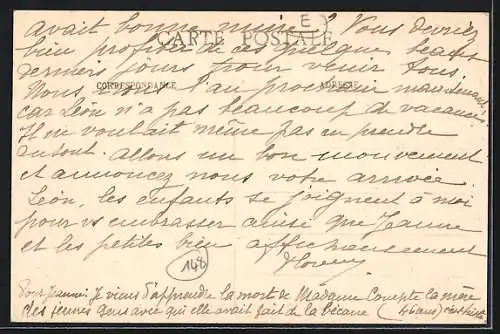 E
avait bonne mine ? Vous devriez
CARTE POSTALE
bien profiter de ces quelques beaux
derniers jours pour venir tous.
CORRESPONDANCE ADRESSE
Nous l'an prochain maintenant
car Léon n'a pas beaucoup de vacances
Il ne voulait même pas en prendre
du tout. Allons un bon mouvement
et annoncez nous votre arrivée
Léon, les enfants se joignent à moi
pour vs embrasser ainsi que Jeanne
et les petites bien affectueusement
148
Pour Jeanne: Je viens d'apprendre la mort de Madame la mère
des jeunes gens avec qui elle avait fait de la bécane (46 ans)